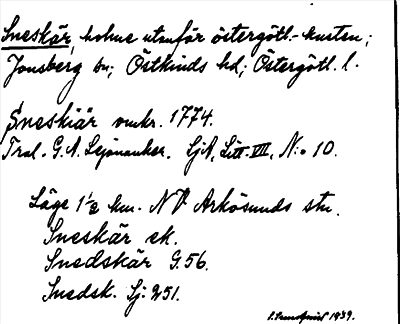 Sneskär, holme utanför östergötl.-kusten;
Jonsberg sn; Östkinds hd; Östergötl. l.
Sneskiär omkr. 1774.
Tral. G. A. Lejonanker. SjA, Litt. VII, N:o 10.
Läge 1½ km. NV Arkösunds stn.
Sneskär ek.
Snedskär G.56.
Snedsk. Sj. 251.
1939.